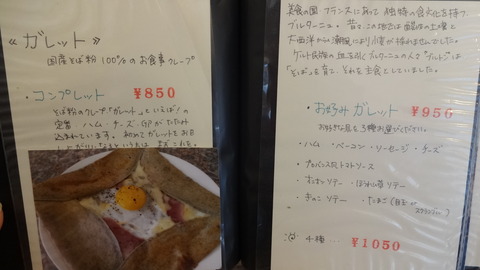 ≪ ガレット ≫
国産そば粉 100%のお食事クレープ
・コンプレット ¥850
そば粉のクレープ「ガレット」といえば!の
定番 ハム・チーズ・
込まれています。初めてガレットを
美食の国 フランスにあって 独特の食文化を持つ
ブルターニュ。昔、この地では
大西洋から 潮風により小麦が採れませんでした。
ケルト民族の血を ブルターニュの人々
「そば」を育て、それを主食としていました。
・お好み ガレット ¥950
お好きな具を 3種お選びください。
・ハム ・ベーコン ・ソーセージ ・チーズ
・プロバンス風トマトソース
・ ソテー ・ほうれん草ソテー
・きのこ ソテー ・たまご (目玉 or
スクランブル)
4種 … ¥1050